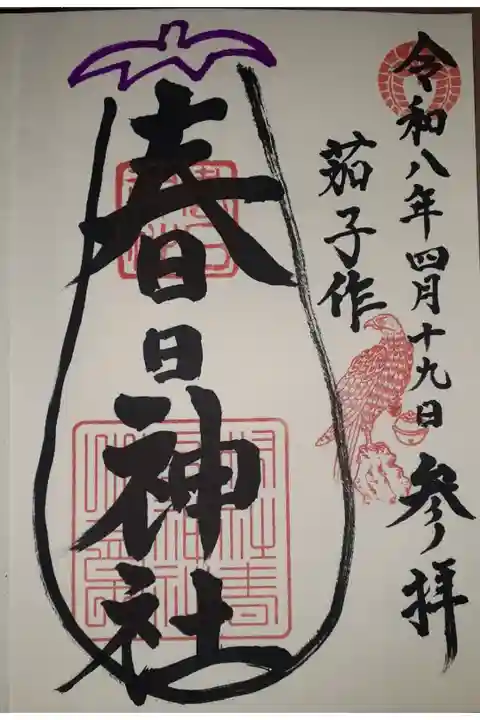 令和八年四月十九日参拝
茄子作
春日神社